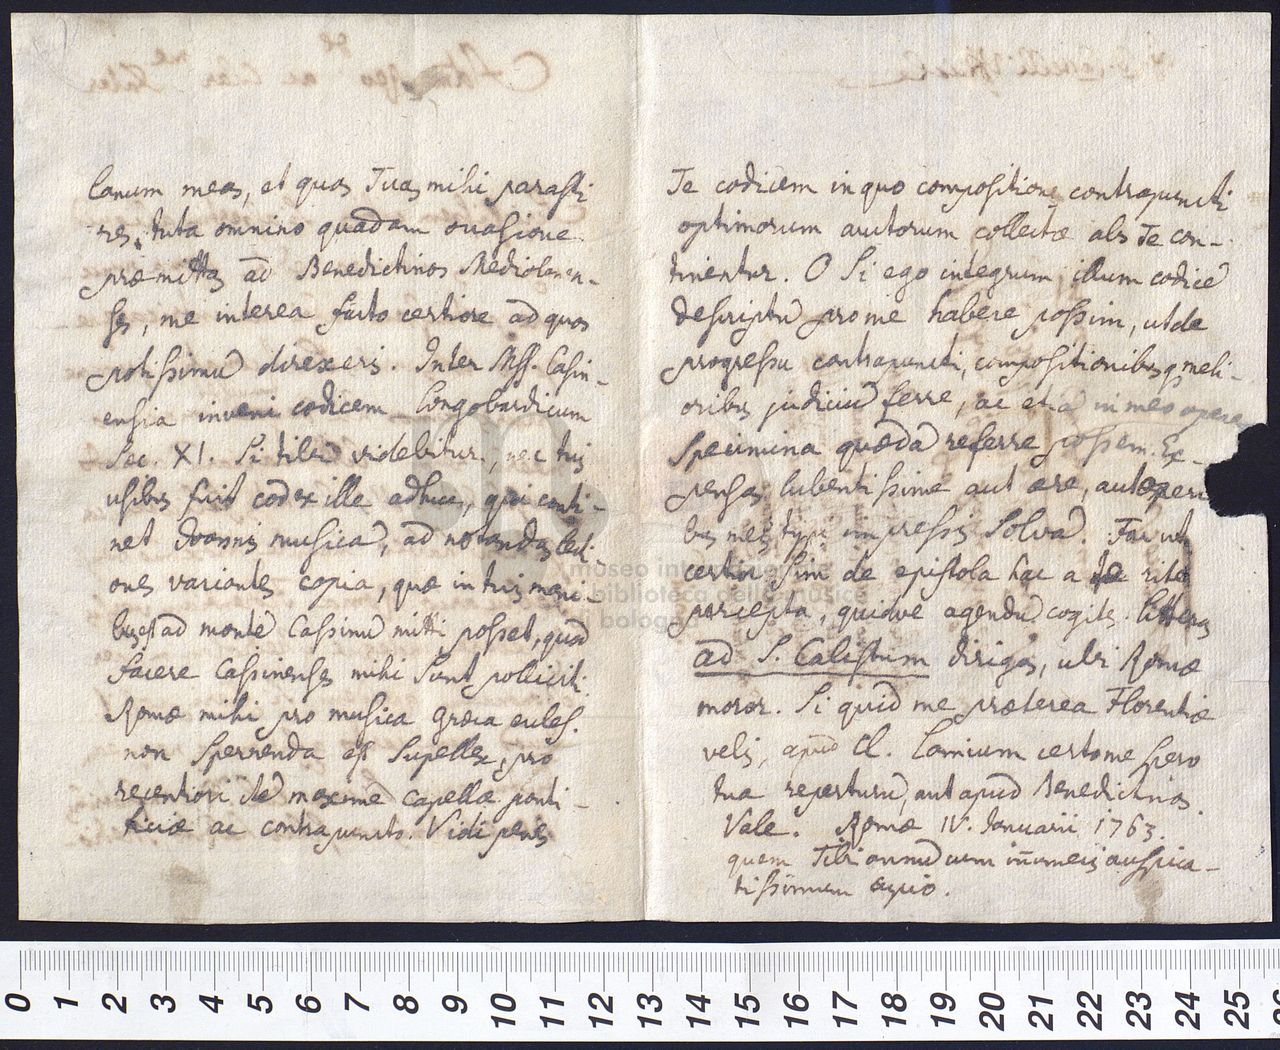 lanum meas, et quas Tuas mihi parasti
res, tuta omnino quadam ovasione
præmittas ad Benedictinos Mediolanen-
ses, me interea facto certiore ad quos
potissimū direxeris. Inter Mss. Casin-
ensia inveni codicem Longobardicum
Sec. XI. Si tibi videbitur, nec tuis
usibus fuit codex ille adhuc, qui conti-
net Joannis musicā, ad notandas lecti-
ones variantes copia, quæ in tuis mani-
bus est ad montē Cassinū mitti posset, quod
facere Cassinenses mihi sunt polliciti.
Romæ mihi pro musica græca eccles.
non spernenda est supellex, pro
recentiori itē maxime Capellæ ponti-
ficiæ ac contrapuncto. Vidi penes
Te codicem in quo compositiones contrapuncti
optimorum autorum collectæ abs Te con-
tinentur. O si ego integrum illum codicē
descriptū pro me habere possim, ut de
progressu contrapuncti, compositionibusq meli-
oribus judiciū ferre, ac etiā in meo opere
specimina quædā referre possem. Ex-
pensas lubentissime aut ære, aut operi
bus meis typis impressis solvā. Fac ut
certus sim de epistola hac a te rite
percepta, quidve agendū cogites. Litteras
ad S. Calistum dirigas, ubi Romæ
moror. Si quid me præterea Florentiæ
velis, apud Cl. Lamium certo me spero
tua reperturū, aut apud Benedictinos.
Vale. Romæ IV. Januarii 1763.
quem Tibi annū cum iñumeris auspica-
tissimum cupio.
museo internazionale
e biblioteca della musica
di bologna
0 1 2 3 4 5 6 7 8 9 10 11 12 13 14 15 16 17 18 19 20 21 22 23 24 25